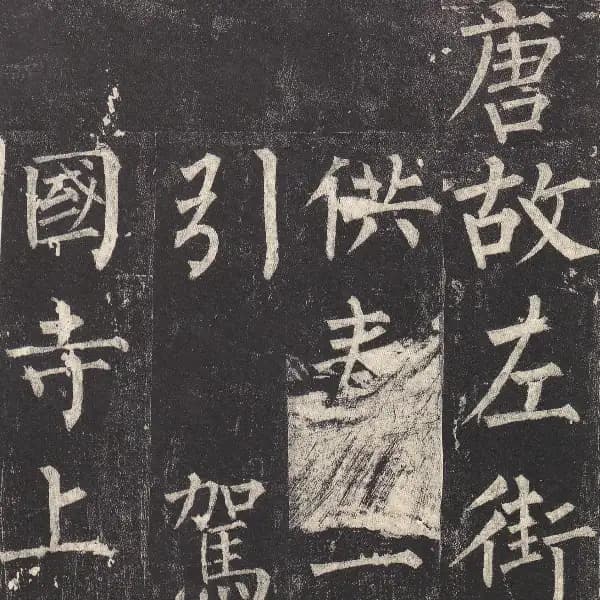 唐故左街
供
引駕
國寺上